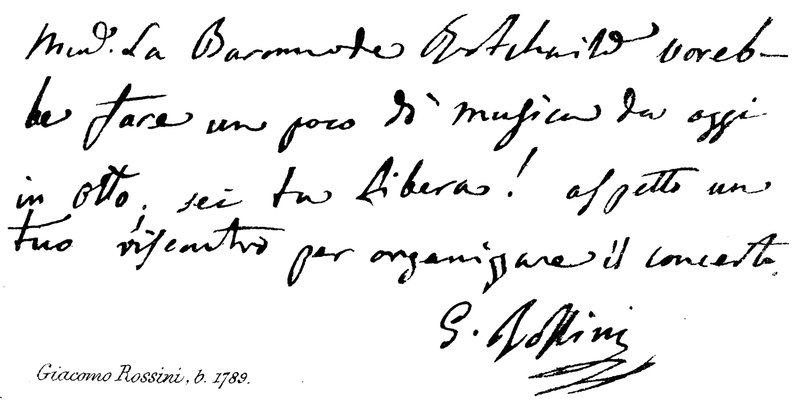 Mad. La Baronne de Rotchaild voreb-
be fare un poco di musica da oggi
in otto. sei tu libera! aspetto un
tuo riscontro per organizzare il concerto
G. Rossini
Giacomo Rossini, b. 1789.